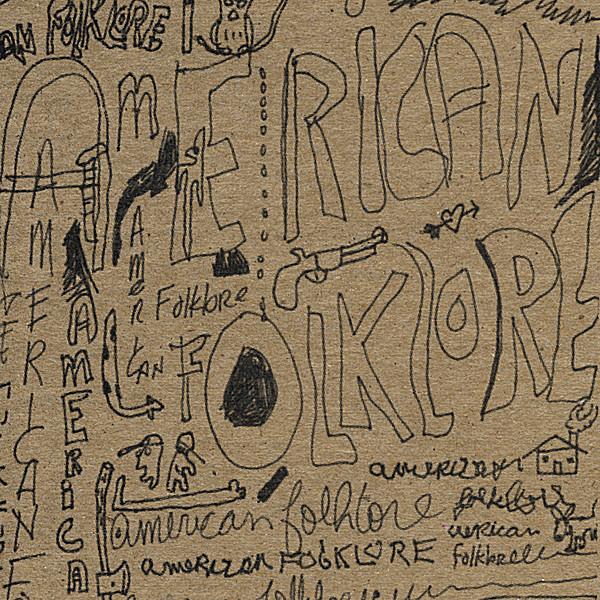 AN FOLKLORE
AMERICAN
AMERICAN
AMERICAN
AMERICAN
Folklore
FOLKLORE
american
american folklore
folklore
american FOLKLORE
folklore
folklore